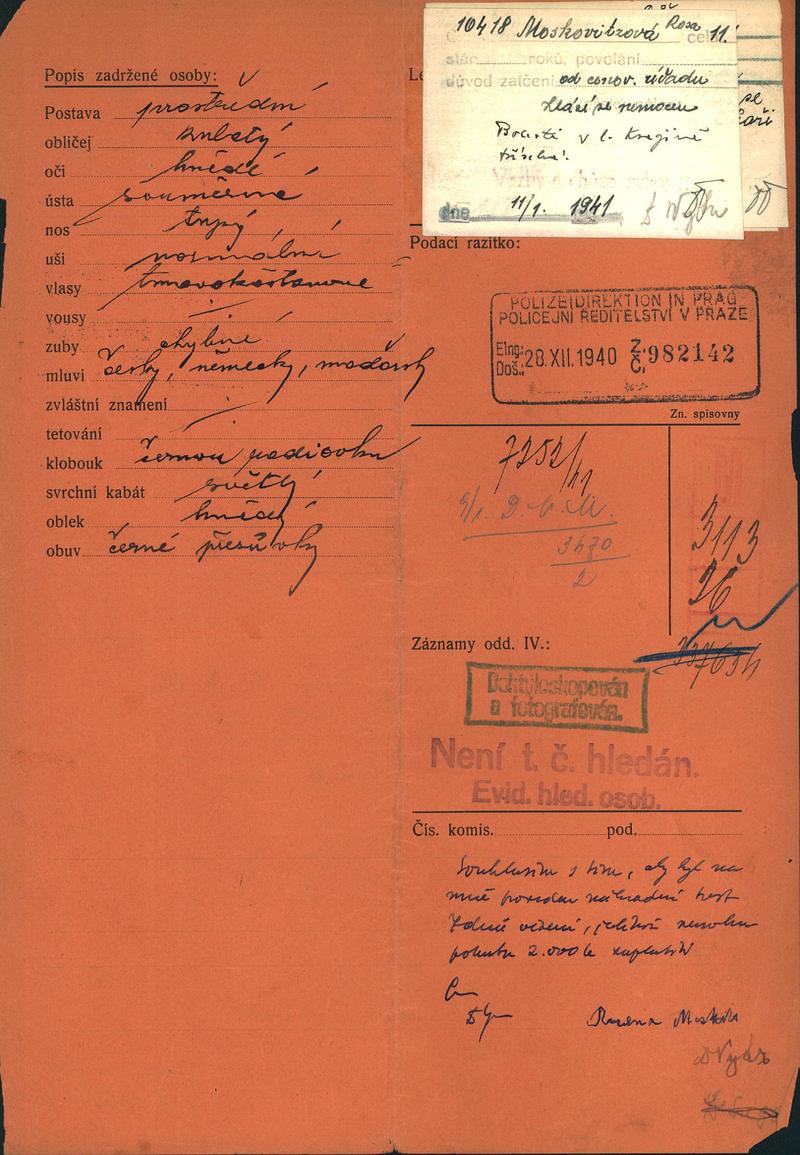 Popis zadržené osoby:
Postava prostřední
obličej kulatý
oči hnědé
ústa souměrné
nos tupý
uši normální
vlasy tmavokaštanové
vousy
zuby chybné
mluví česky, německy, maďarsky
zvláštní znamení
tetování
klobouk černou radiovku
svrchní kabát světlý
oblek hnědý
obuv černé přesůvky
10418 Moskovitzová Rosa cel 11.
roků, povolání
důvod zatčení od cenov. úřadu
hlásí se nemocen
Bolesti v l. krajině
tříselné.
dne 11/1. 1941
Podací razítko:
POLIZEIDIREKTION IN PRAG
POLICEJNÍ ŘEDITELSTVÍ V PRAZE
Elng.:
Doš.: 28.XII.1940 Z. Č. 982142
Zn. spisovny
7352/41
3470
2
3113
26
Záznamy odd. IV.:
Daktyloskopován
a fotografován.
Není t. č. hledán.
Evid. hled. osob.
Čís. komis. pod.
Souhlasím s tím, aby byl na
mně povolán náhradní trest
vězení, jelikož nemohu
pokutu 2.000 K zaplatiti